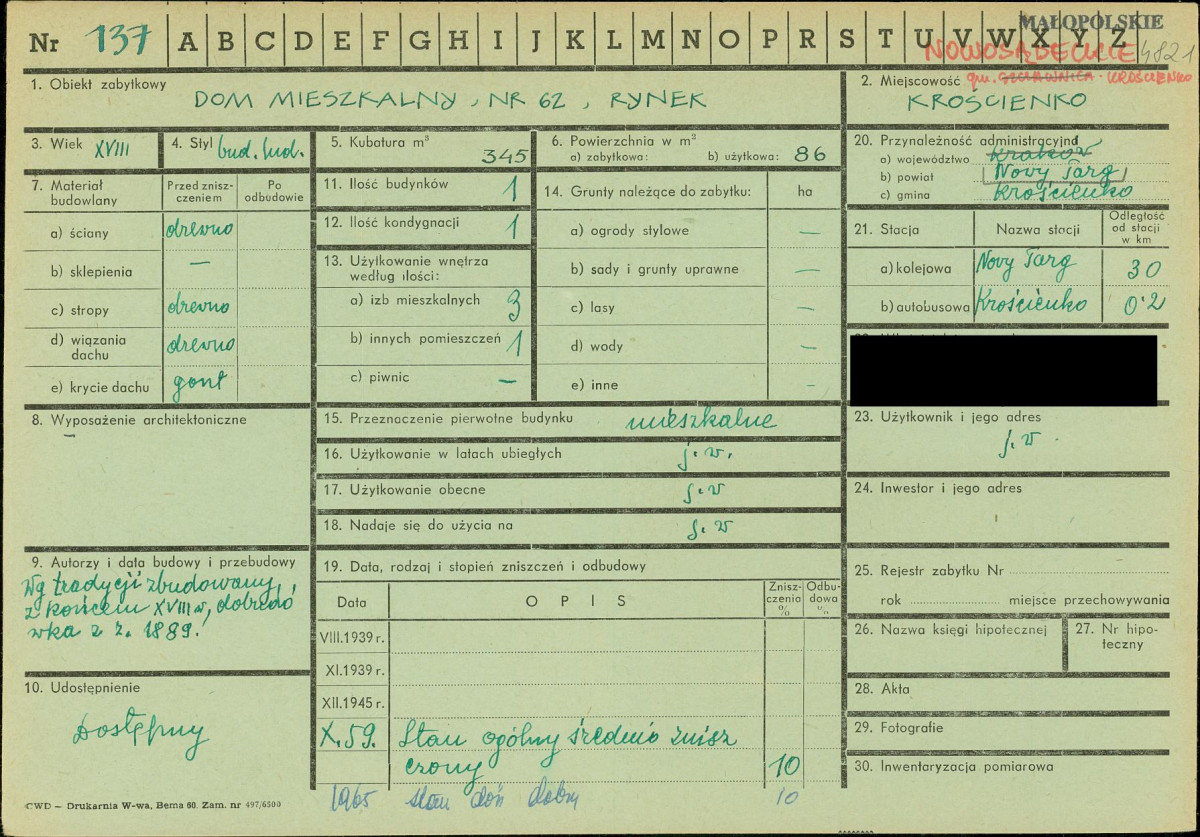 MAŁOPOLSKIE
Nr 137 A B C D E F G H I J K L M N O P R S T U V W X Y Z
NOWOSĄDECKIE 4821
gm. SZCZAWNICA - KROŚCIENKO
1. Obiekt zabytkowy
DOM MIESZKALNY, NR 62, RYNEK
2. Miejscowość
KROŚCIENKO
3. Wiek XVIII
4. Styl bud. lud.
5. Kubatura m³
345
6. Powierzchnia w m²
a) zabytkowa: b) użytkowa: 86
20. Przynależność administracyjna
a) województwo Kraków
b) powiat Nowy Targ
c) gmina Krościenko
7. Materiał budowlany
Przed zniszczeniem
Po odbudowie
a) ściany drewno
b) sklepienia —
c) stropy drewno
d) wiązania dachu drewno
e) krycie dachu gont
11. Ilość budynków 1
12. Ilość kondygnacji 1
13. Użytkowanie wnętrza
według ilości:
a) izb mieszkalnych 3
b) innych pomieszczeń 1
c) piwnic —
14. Grunty należące do zabytku: ha
a) ogrody stylowe —
b) sady i grunty uprawne —
c) lasy —
d) wody —
e) inne -
21. Stacja
Nazwa stacji
Odległość
od stacji
w km
a) kolejowa Nowy Targ 30
b) autobusowa Krościenko 0·2
8. Wyposażenie architektoniczne
—
15. Przeznaczenie pierwotne budynku mieszkalne
16. Użytkowanie w latach ubiegłych j.w.
17. Użytkowanie obecne j.w
18. Nadaje się do użycia na j.w
23. Użytkownik i jego adres
j.w.
24. Inwestor i jego adres
9. Autorzy i data budowy i przebudowy
Wg tradycji zbudowany
z końcem XVIII w, dobudó
wka z r. 1889.
10. Udostępnienie
Dostępny
19. Data, rodzaj i stopień zniszczeń i odbudowy
Data
OPIS
Zniszczenia %
Odbudowa %
VIII.1939 r.
XI.1939 r.
XII.1945 r.
X.59. Stan ogólny średnio znisz
czony 10
1965 stan dość dobry 10
25. Rejestr zabytku Nr
rok miejsce przechowywania
26. Nazwa księgi hipotecznej
27. Nr hipoteczny
28. Akta
29. Fotografie
30. Inwentaryzacja pomiarowa
CWD — Drukarnia W-wa, Bema 60. Zam. nr 497/6500